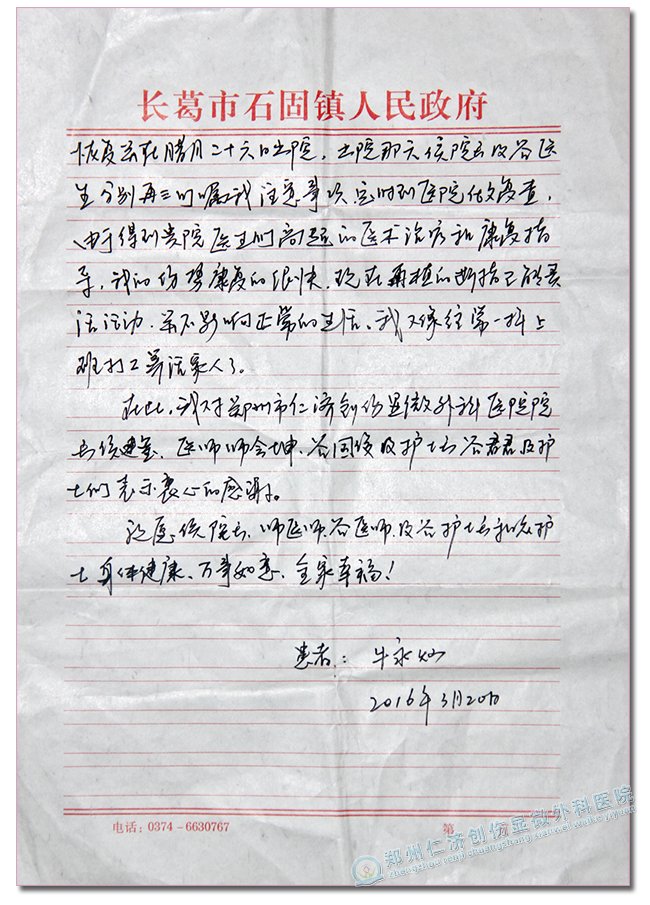 长葛市石固镇人民政府
恢复 于腊月二十六日出院，出院那天侯院长及谷医
生分别再三叮嘱我注意事项，定时到医院做复查，
由于得到贵院医生们高超的医术治疗和康复指
导，我的伤势康复的很快，现在再植的断指已能灵
活活动，并不影响正常的生活，我又像往常一样上
班打工养活家人了。
在此，我对郑州市仁济创伤显微外科医院院
长侯建玺、医师师会坤、谷国俊及护士长谷君君及护
士们表示衷心的感谢。
祝愿侯院长、师医师、谷医师、及谷护士长和众护
士身体健康、万事如意、全家幸福！
患者：牛永灿
2016年3月20日
电话：0374-6630767
第 页
郑州仁济创伤显微外科医院